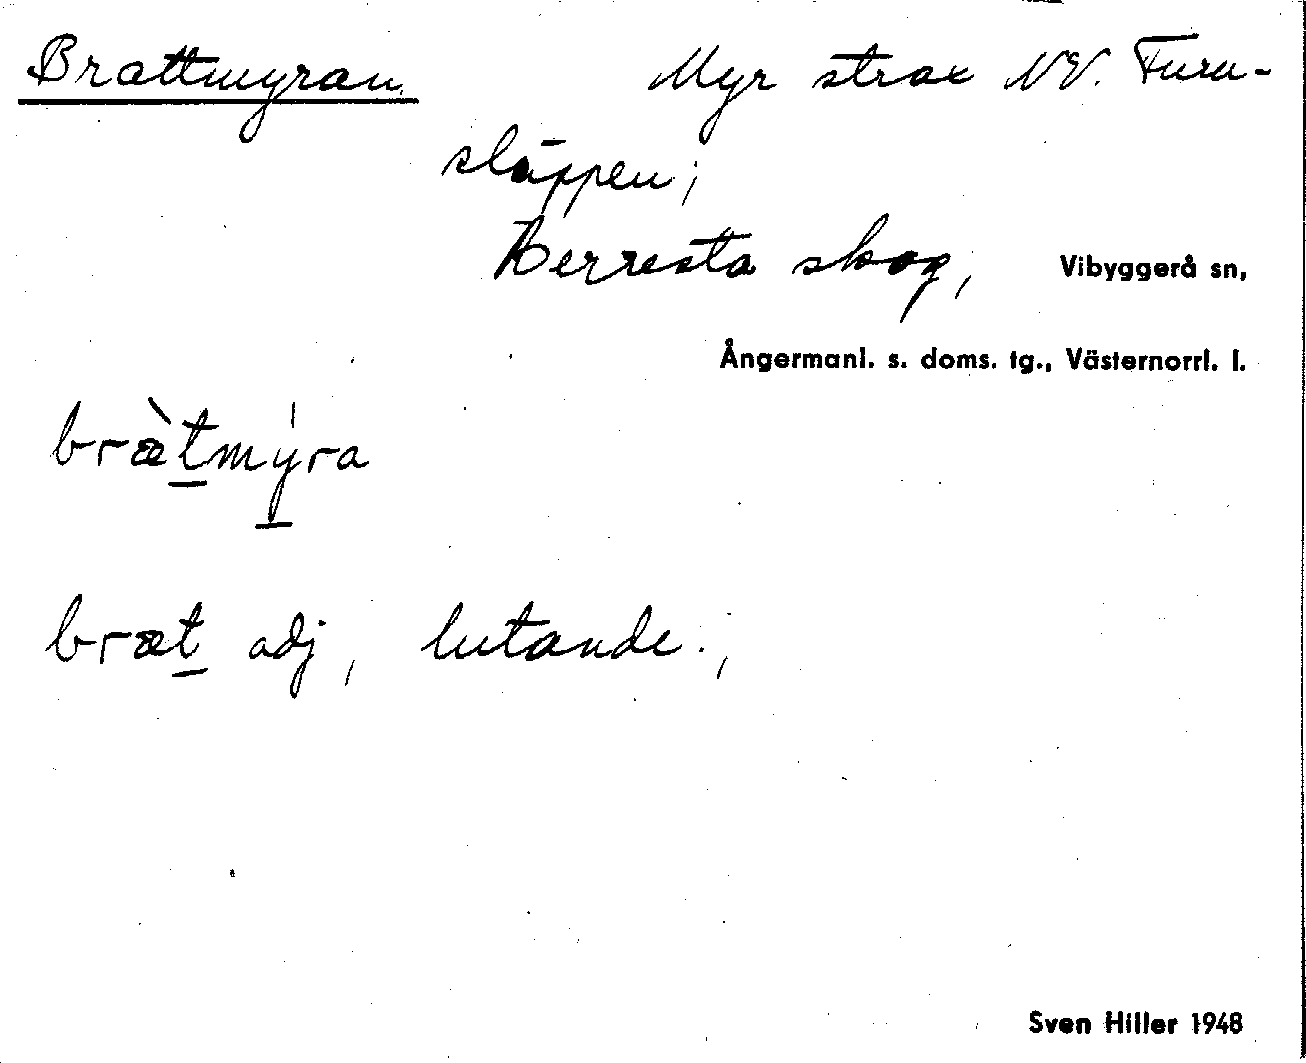 Brattmyran. Myr strax NV. Furu-
släppen;
Berresta skog, Vibyggerå sn,
Ångermanl. s. doms. tg., Västernorrl. l.
bræ̀tmýra
bræt adj, lutande.,
Sven Hiller 1948